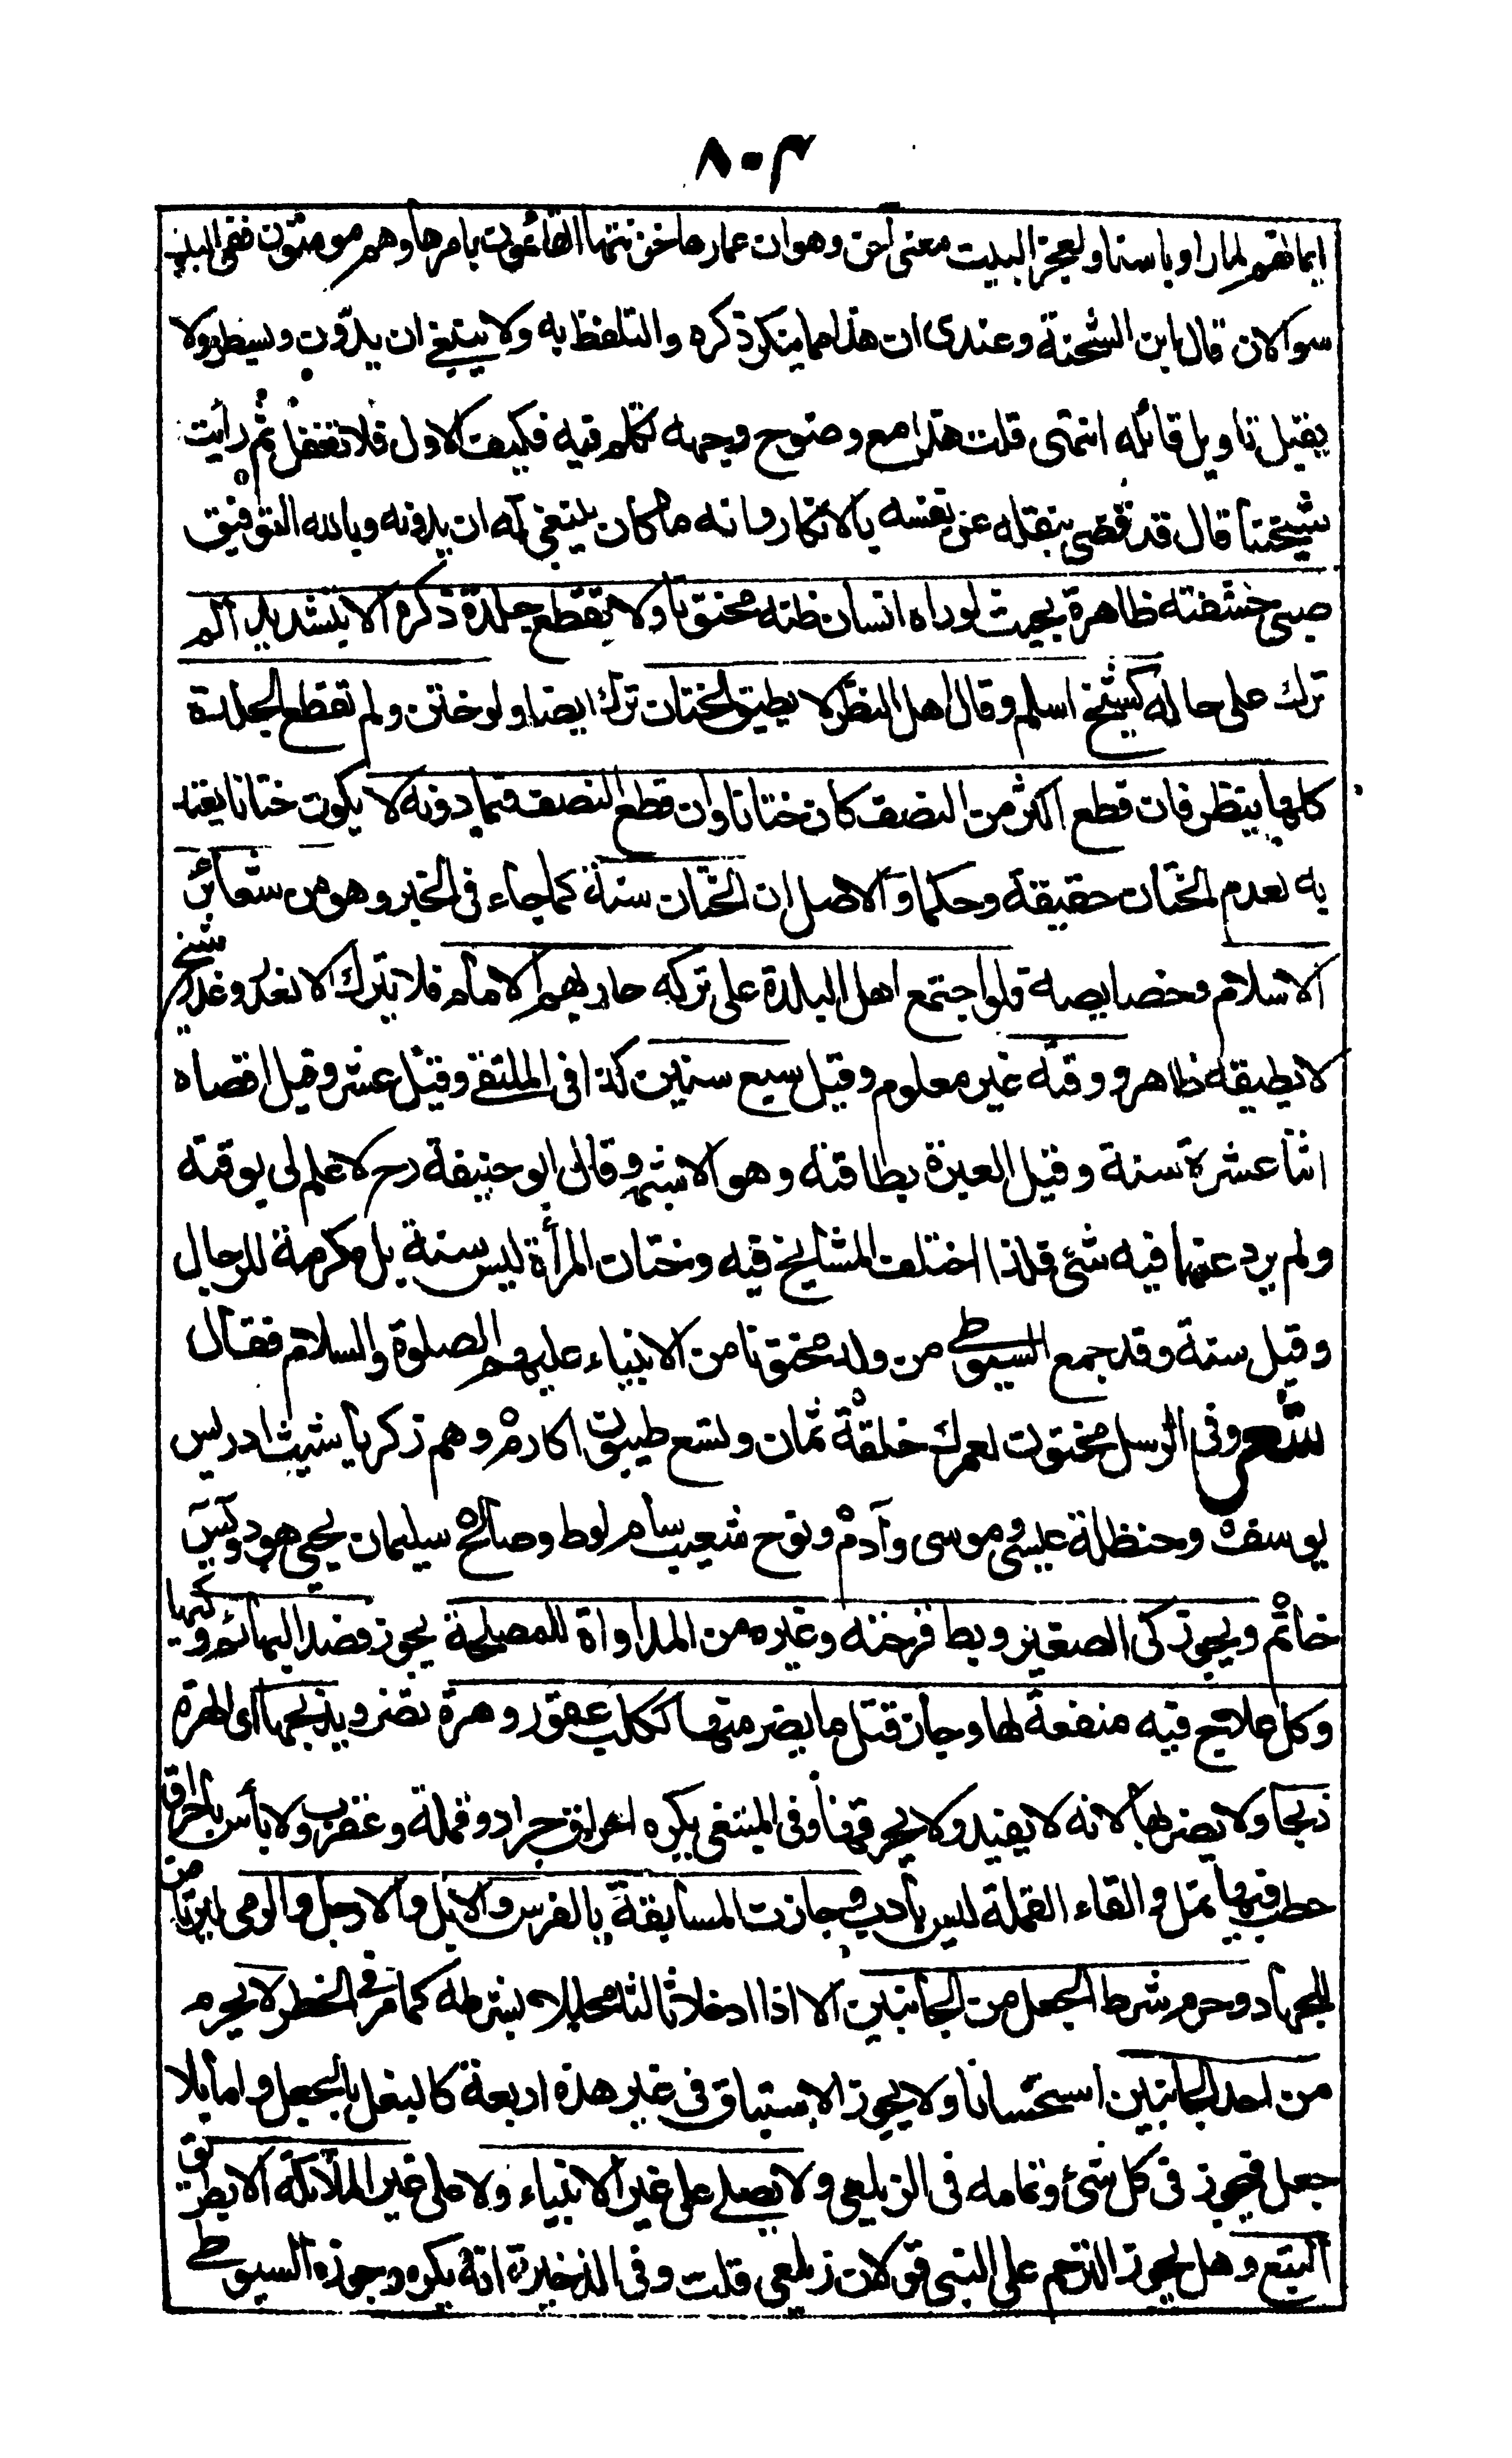 ٨٠٣
ايمانهم لما راوا باسنا ولعجز البيت معنى آخر وهو ان عمارها خزنتها القائمون بامرها وهم مومنون ففي البيت
سوالان قال ابن الشحنة وعندى ان هذا مما ينكر ذكره والتلفظ به ولا ينبغي ان يدون ويسطر ولا
يقبل تاويل قائله انتهى قلت هذا مع وضوح وجهه تكلم فيه فكيف الاول فلا تغفل ثم رأيت
شيخنا قال قد قضى بنقله عن نفسه بالانكار وانه ما كان ينبغي له ان يدونه وبالله التوفيق
صبى حشفته ظاهرة بحيث لو راه انسان ظنه مختونا ولا تقطع جلدة ذكره الا بتشديد الم
ترك على حاله كشيخ اسلم وقال اهل النظر لا يطيق الختان ترك ايضا ولو ختن ولم تقطع الجلدة
كلها ينظر فان قطع اكثر من النصف كان ختانا وان قطع النصف فما دونه لا يكون ختانا يعتد
به لعدم الختان حقيقة وحكما والاصل ان الختان سنة كما جاء فى الخبر وهو من شعائر
الاسلام وخصايصه فلو اجتمع اهل البلدة على تركه حاربهم الامام فلا يترك الا لعذر وعذر شيخ
لا يطيقه ظاهر ووقته غير معلوم وقيل سبع سنين كذا فى الملتقى وقيل عشر وقيل اقصاه
اثنا عشرة سنة وقيل العبرة بطاقته وهو الاشبه وقال ابو حنيفة رح لا علم لى بوقته
ولم يرد عنهما فيه شئ فلذا اختلف المشايخ فيه وختان المرأة ليس سنة بل مكرمة للرجال
وقيل سنة وقد جمع السيوطى من ولد مختونا من الانبياء عليهم الصلوة والسلام فقال
شعر وفى الرسل مختون لعمرك خلقة ثمان وتسع طيبون اكارم وهم زكريا شيث ادريس
يوسف وحنظلة عيسى وموسى وآدم ونوح شعيب سام لوط وصالح سليمان يحيى هود ويس
خاتم ويجوز كى الصغير وبط قرحته وغيره من المداواة للمصلحة يجوز فصد البهائم وكيها
وكل علاج فيه منفعة لها وجاز قتل ما يضر منها ككلب عقور وهرة تضر ويذبحها اى الهرة
ذبحا ولا يضر بها لانه لا يفيد ولا يحرقها وفى المبتغى يكره احراق جراد وقملة وعقرب ولا بأس باحراق
حطب فيها نمل والقاء القملة ليس بأدب وجازت المسابقة بالفرس والابل والارجل والرمى ليرتاض
للجهاد وحرم شرط الجعل من الجانبين الا اذا ادخلا ثالثا محللا بشرطه كما مر فى الخطر لا يحرم
من احد الجانبين استحسانا ولا يجوز الاستباق فى غير هذه اربعة كالبغل بالجعل واما بلا
جعل فيجوز فى كل شئ وتمامه فى الزيلعى ولا يصلى على غير الانبياء ولا على غير الملائكة الا بطريق
التبع وهل يجوز الترحم على النبى قولان زيلعى قلت وفى الذخيرة انه يكره وجوزه السيوطى